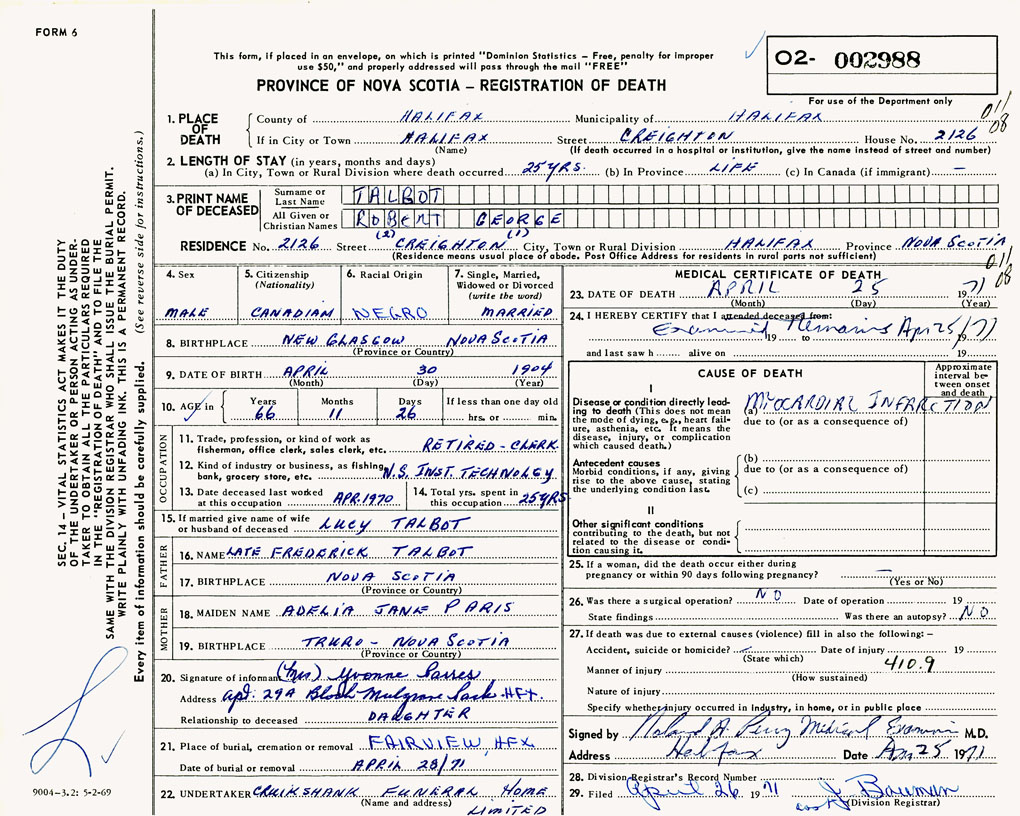 FORM 6
This form, if placed in an envelope, on which is printed "Dominion Statistics – Free, penalty for improper
use $50," and properly addressed will pass through the mail "FREE"
PROVINCE OF NOVA SCOTIA – REGISTRATION OF DEATH
02- 002988
For use of the Department only
011
08
1. PLACE OF DEATH
County of HALIFAX Municipality of HALIFAX
If in City or Town HALIFAX Street CREIGHTON House No. 2126
(Name) (If death occurred in a hospital or institution, give the name instead of street and number)
2. LENGTH OF STAY (in years, months and days)
(a) In City, Town or Rural Division where death occurred 25 YRS. (b) In Province LIFE (c) In Canada (if immigrant) —
3. PRINT NAME OF DECEASED
Surname or Last Name TALBOT
All Given or Christian Names ROBERT GEORGE
(2) (1)
RESIDENCE No. 2126 Street CREIGHTON City, Town or Rural Division HALIFAX Province NOVA SCOTIA
(Residence means usual place of abode. Post Office Address for residents in rural parts not sufficient)
011
08
4. Sex
MALE
5. Citizenship
(Nationality)
CANADIAN
6. Racial Origin
NEGRO
7. Single, Married,
Widowed or Divorced
(write the word)
MARRIED
8. BIRTHPLACE NEW GLASGOW NOVA SCOTIA
(Province or Country)
9. DATE OF BIRTH APRIL 30 1904
(Month) (Day) (Year)
10. AGE in Years 66 Months 11 Days 26 If less than one day old
hrs. or min.
OCCUPATION
11. Trade, profession, or kind of work as
fisherman, office clerk, sales clerk, etc. RETIRED - CLERK
12. Kind of industry or business, as fishing,
bank, grocery store, etc. N.S. INST. TECHNOLGY
13. Date deceased last worked
at this occupation APR. 1970
14. Total yrs. spent in
this occupation 25 YRS
15. If married give name of wife
or husband of deceased LUCY TALBOT
FATHER
16. NAME LATE FREDERICK TALBOT
17. BIRTHPLACE NOVA SCOTIA
(Province or Country)
MOTHER
18. MAIDEN NAME ADELIA JANE PARIS
19. BIRTHPLACE TRURO - NOVA SCOTIA
(Province or Country)
20. Signature of informant (Mrs) Yvonne
Address apt. 29A Block Mulgrave Park HFX.
Relationship to deceased DAUGHTER
21. Place of burial, cremation or removal FAIRVIEW, HFX
Date of burial or removal APRIL 28/71
22. UNDERTAKER CRUIKSHANK FUNERAL HOME
(Name and address) LIMITED
MEDICAL CERTIFICATE OF DEATH
23. DATE OF DEATH APRIL 25 1971
(Month) (Day) (Year)
24. I HEREBY CERTIFY that I attended deceased from:
Examined Remains Apr 25/71
19 to 19
and last saw h alive on 19
CAUSE OF DEATH
Approximate
interval be-
tween onset
and death
I
Disease or condition directly lead-
ing to death (This does not mean
the mode of dying, e.g., heart fail-
ure, asthenia, etc. It means the
disease, injury, or complication
which caused death.)
(a) MYOCARDIAL INFARCTION
due to (or as a consequence of)
Antecedent causes
Morbid conditions, if any, giving
rise to the above cause, stating
the underlying condition last.
(b)
due to (or as a consequence of)
(c)
II
Other significant conditions
contributing to the death, but not
related to the disease or condi-
tion causing it.
25. If a woman, did the death occur either during
pregnancy or within 90 days following pregnancy? —
(Yes or No)
26. Was there a surgical operation? NO Date of operation 19
State findings Was there an autopsy? NO
27. If death was due to external causes (violence) fill in also the following: –
Accident, suicide or homicide? Date of injury 19
(State which)
Manner of injury 410.9
(How sustained)
Nature of injury
Specify whether injury occurred in industry, in home, or in public place
Signed by Roland A. Perry Medical Examiner M.D.
Address Halifax Date Apr 25 1971
28. Division Registrar's Record Number
29. Filed April 26 1971 J Bauman
(Division Registrar)
SEC. 14 – VITAL STATISTICS ACT MAKES IT THE DUTY
OF THE UNDERTAKER OR PERSON ACTING AS UNDER-
TAKER TO OBTAIN ALL THE PARTICULARS REQUIRED
IN THE "REGISTRATION OF DEATH" AND TO FILE THE
SAME WITH THE DIVISION REGISTRAR WHO SHALL ISSUE THE BURIAL PERMIT.
WRITE PLAINLY WITH UNFADING INK. THIS IS A PERMANENT RECORD.
Every item of information should be carefully supplied. (See reverse side for instructions.)
9004-3.2: 5-2-69